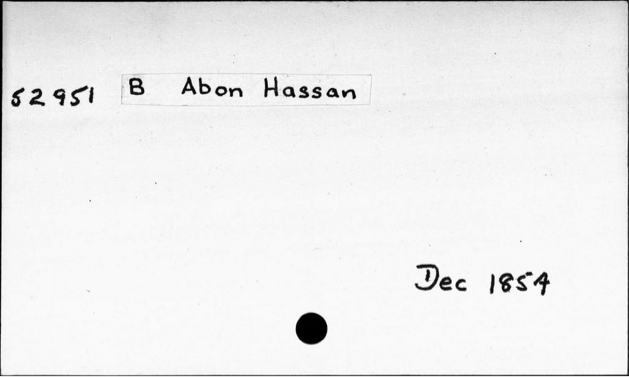 52951 B Abon Hassan
Dec 1854